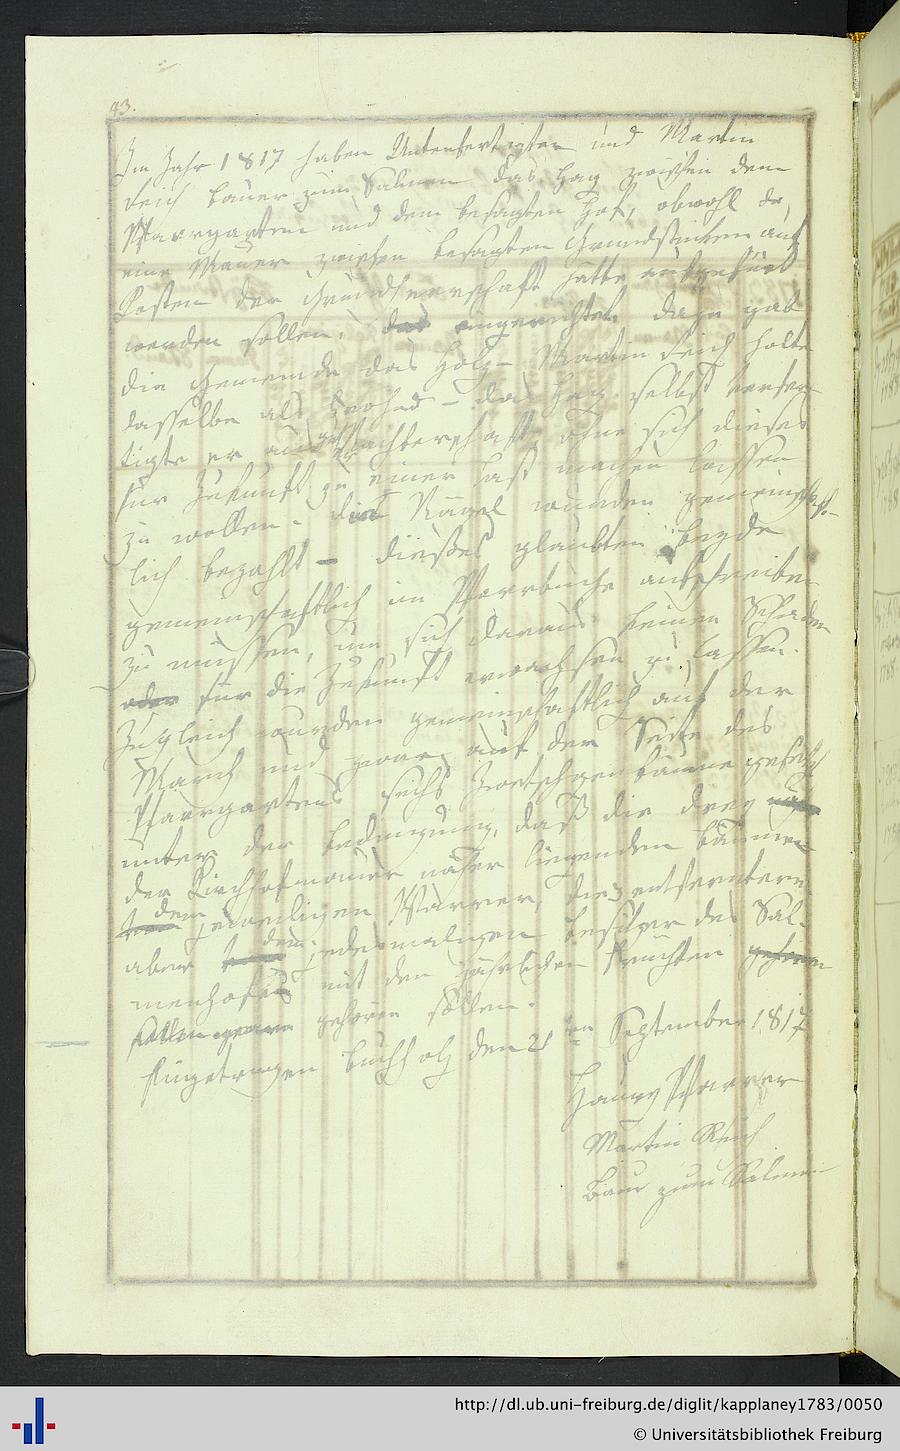 93.
Im Jahr 1817 haben Unterfertigter und Martin
Reich bauer zum Salmen das Hag zwischen dem
Pfarrgarten und dem besagten Hof, obwohl da,
eine Mauer zwischen besagten Grundstücken auf
Kosten der Grundherrschaft hätte aufgeführt
werden sollen, eingerichtet. dazu gab
die Gemeinde das Holz – Martin Reich holte
dasselbe als Frohnd – das Hag selbst verfer-
tigte er aus Nachbarschaft, ohne sich dieses
für Zukunft zu einer Last machen lassen
zu wollen. die Nägel wurden gemeinschaft-
lich bezahlt – dieses glaubten beyde
gemeinschaftlich im Pfarrbuche aufschreiben
zu müssen, um sich daraus keinen Schaden
oder für die Zukunft erwachsen zu lassen.
Zugleich wurden gemeinschaftlich auf der
March und zwar auf der Seite des
Pfarrgartens sechs Zwetschgenbäume gesetzt
unter der Bedingung, daß die drey
der Kirchhofmauer näher liegenden bäumen
dem jeweiligen Pfarrer, die 3 entferntern
aber dem jedesmaligen besitzer des Sal-
menhofes mit den jährlichen Früchten
gehören sollen.
Eingetragen Buchholz den 21ten September 1817
Haury Pfarrer
Martin Reich
Baur zum Salmen
http://dl.ub.uni-freiburg.de/diglit/kapplaney1783/0050
© Universitätsbibliothek Freiburg